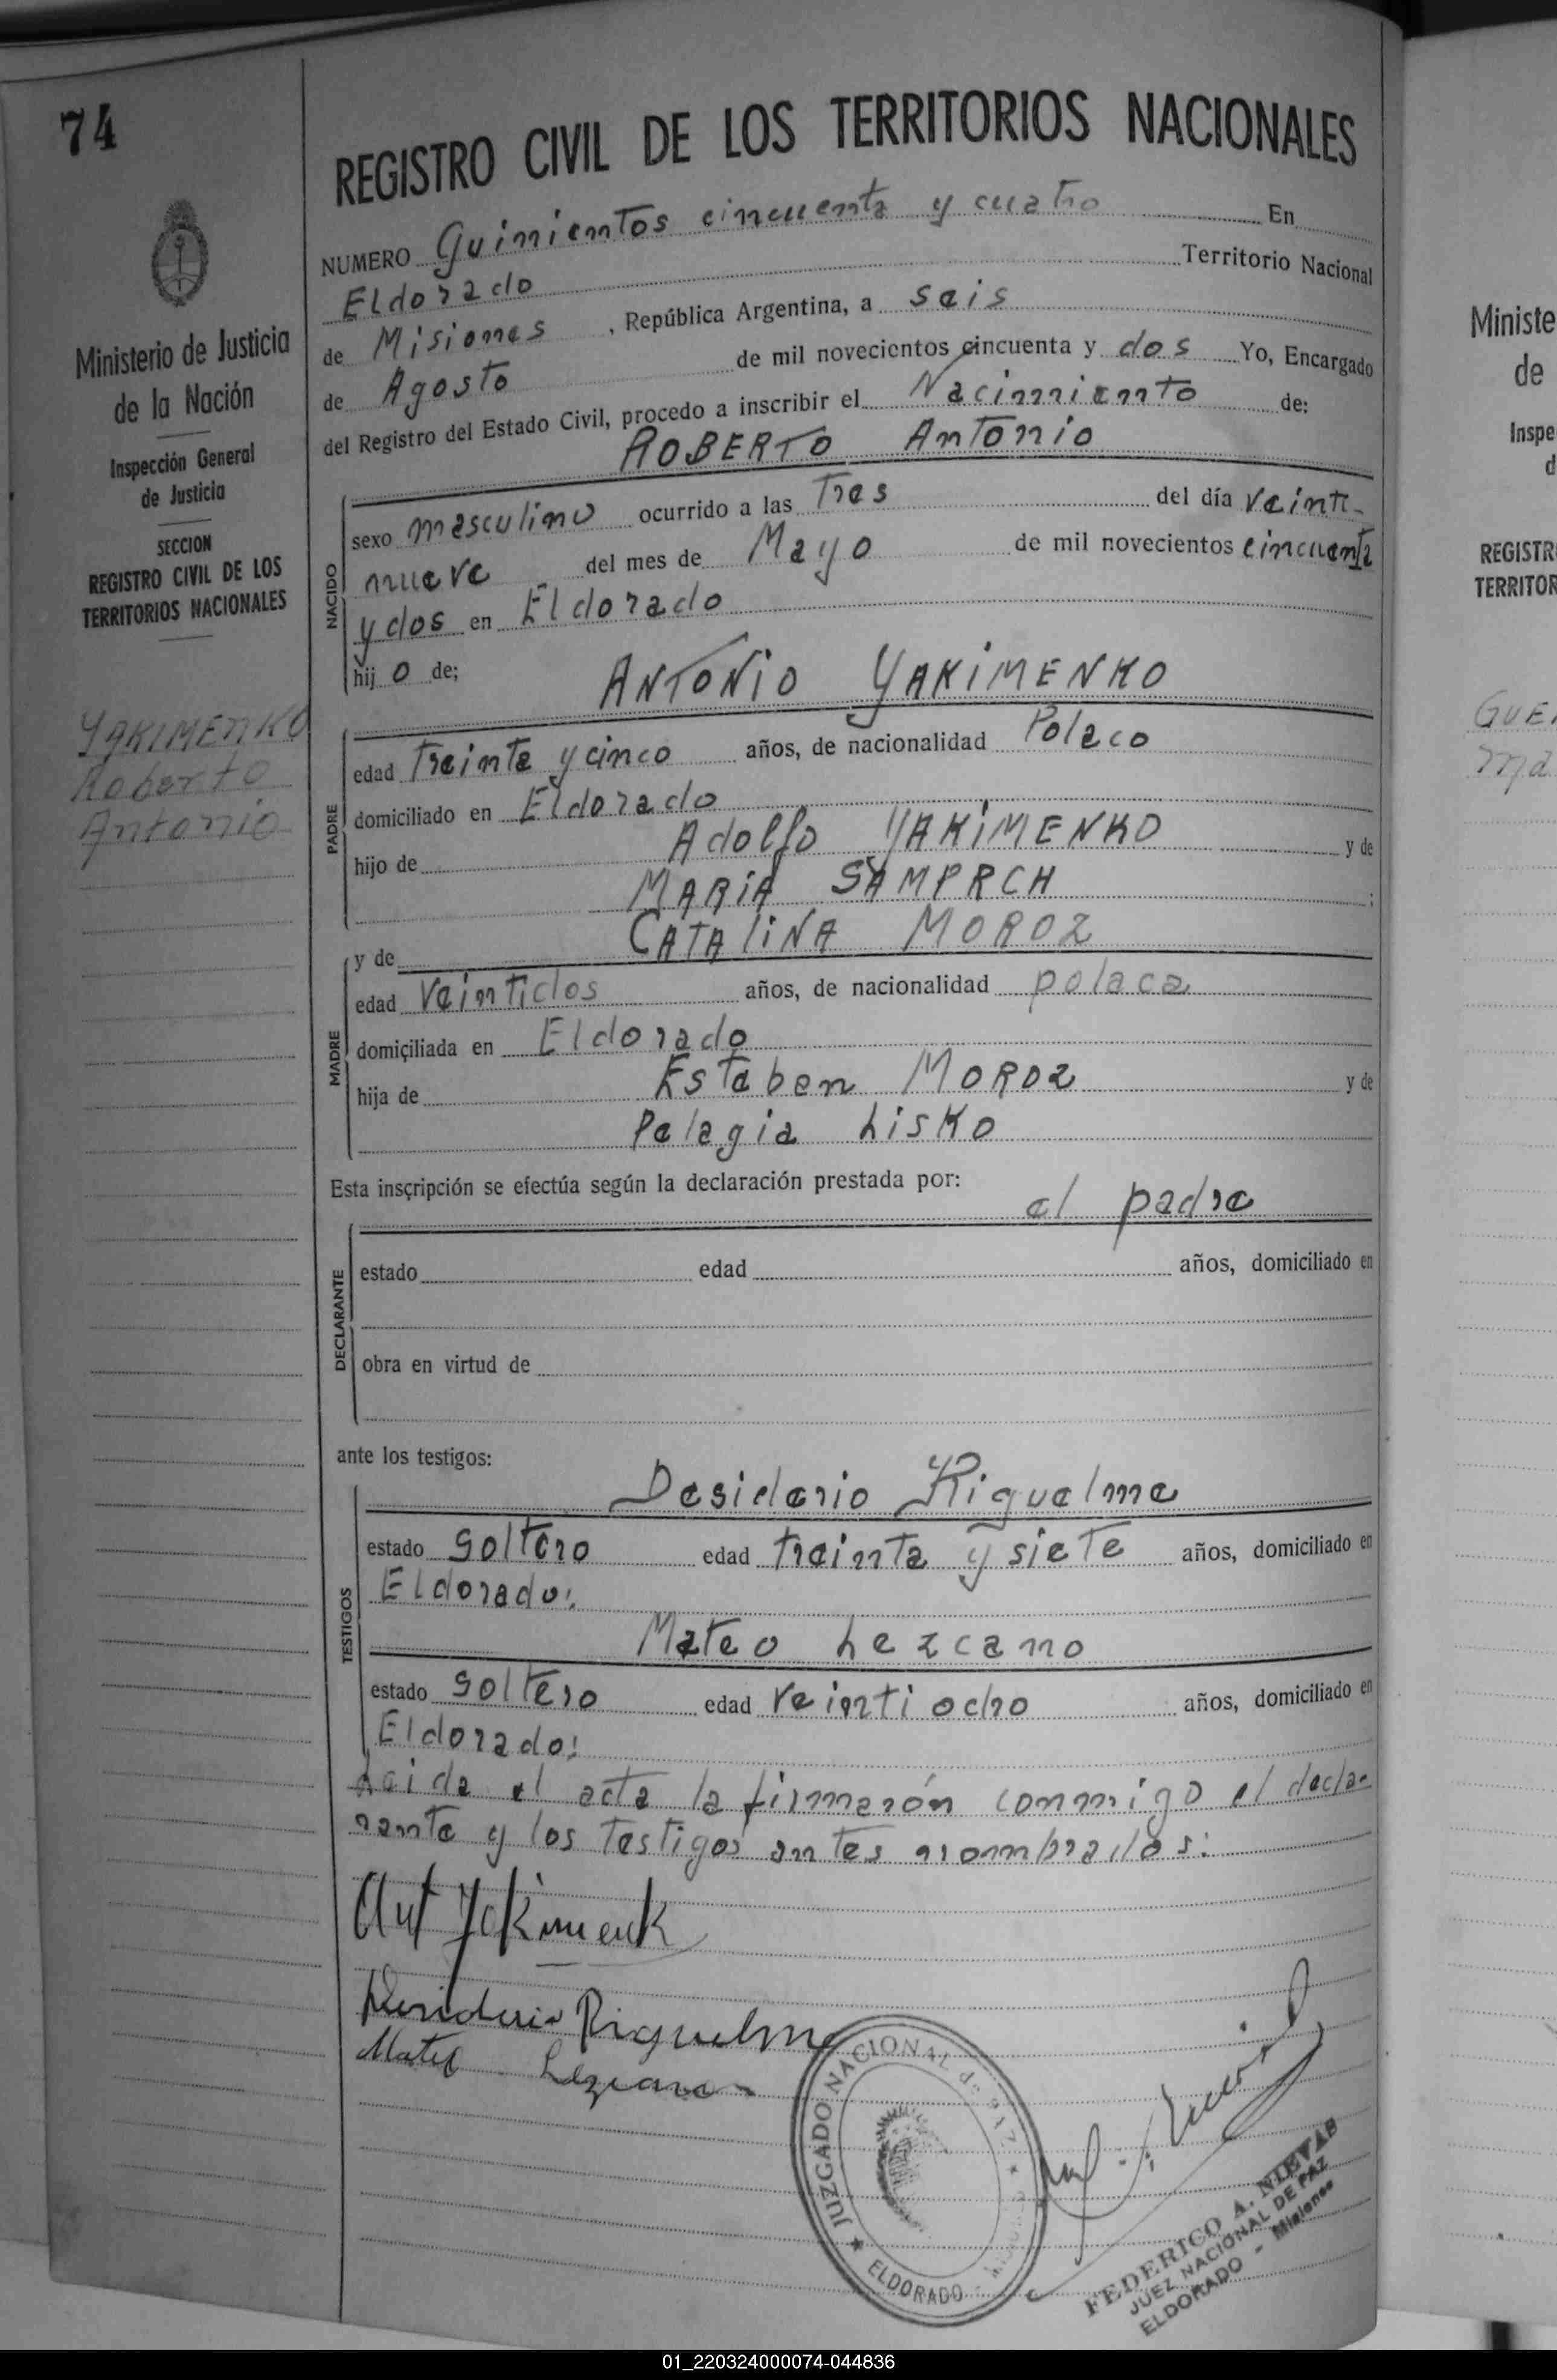 74
Ministerio de Justicia
de la Nación
Inspección General
de Justicia
SECCION
REGISTRO CIVIL DE LOS
TERRITORIOS NACIONALES
YAKIMENKO
Roberto
Antonio
REGISTRO CIVIL DE LOS TERRITORIOS NACIONALES
NUMERO Quinientos cincuenta y cuatro En
Eldorado Territorio Nacional
de Misiones , República Argentina, a seis
de Agosto de mil novecientos cincuenta y dos Yo, Encargado
del Registro del Estado Civil, procedo a inscribir el Nacimiento de:
ROBERTO Antonio
NACIDO
sexo masculino ocurrido a las Tres del día veinti-
nueve del mes de Mayo de mil novecientos cincuenta
y dos en Eldorado
hij o de;
ANTONIO YAKIMENKO
PADRE
edad Treinta y cinco años, de nacionalidad Polaco
domiciliado en Eldorado
hijo de Adolfo YAKIMENKO y de
MARIA SAMPRCH ;
y de CATALINA MOROZ
MADRE
edad Veintidos años, de nacionalidad polaca
domiciliada en Eldorado
hija de Estaben MOROZ y de
Pelagia Lisko
Esta inscripción se efectúa según la declaración prestada por:
el padre
DECLARANTE
estado edad años, domiciliado en
obra en virtud de
ante los testigos:
Desiderio Riquelme
TESTIGOS
estado Soltero edad treinta y siete años, domiciliado en
Eldorado:
Mateo Lezcano
estado Soltero edad veinti ocho años, domiciliado en
Eldorado:
Leida el acta la firmarón conmigo el decla-
rante y los testigos antes nombrados:
Ant Jakimenk
Desiderio Riquelme
Mateo Lezcano
JUZGADO NACIONAL de PAZ
ELDORADO
FEDERICO A. NIEVAS
JUEZ NACIONAL DE PAZ
ELDORADO - Misiones
Ministe
de
Inspe
d
REGISTR
TERRITOR
GUE
Ma
01_220324000074-044836